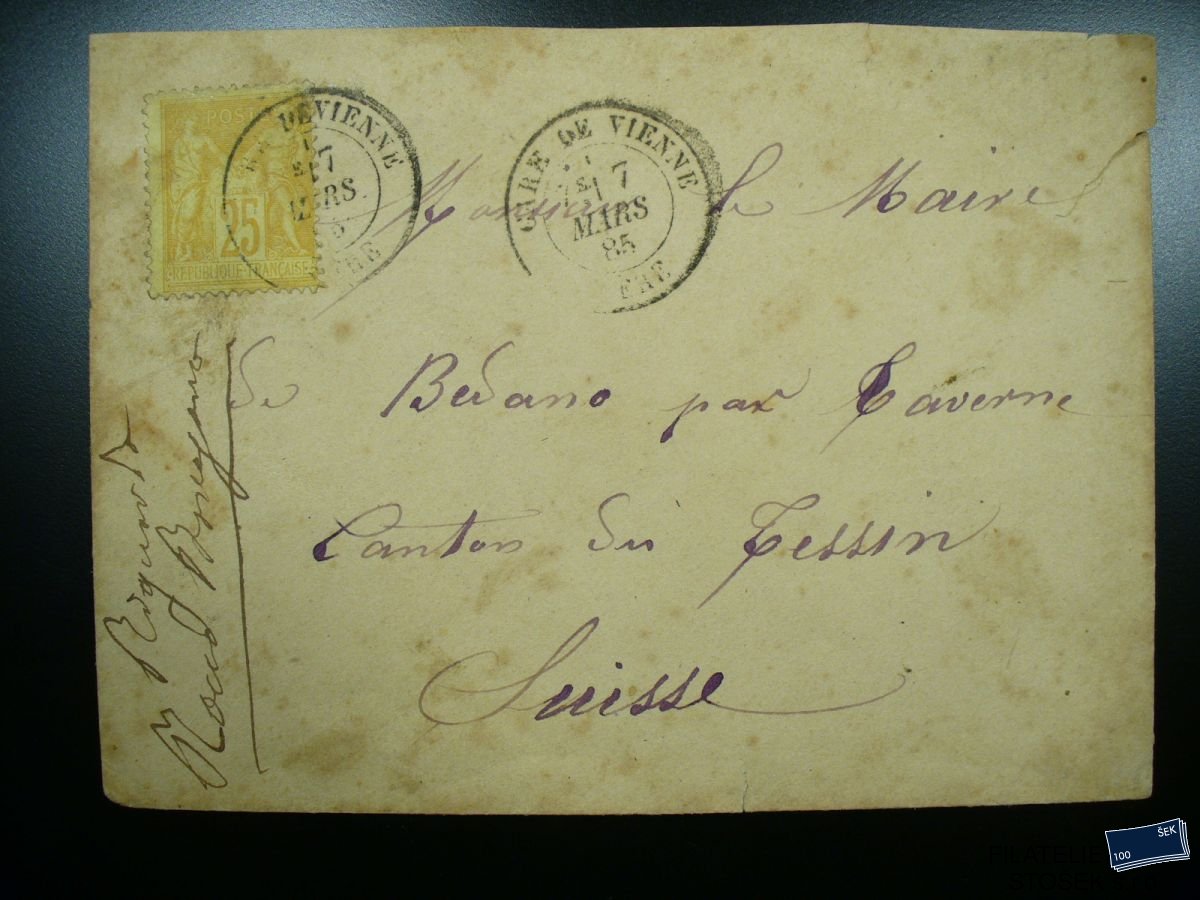 POSTE
25
REPUBLIQUE FRANÇAISE
DE VIENNE
7
MARS
GARE DE VIENNE
1E 7
MARS
85
Monsieur le Maire
de Bedano par Taverne
Canton du Tessin
Suisse
100 ŠEK
FILATELIE
STOSER